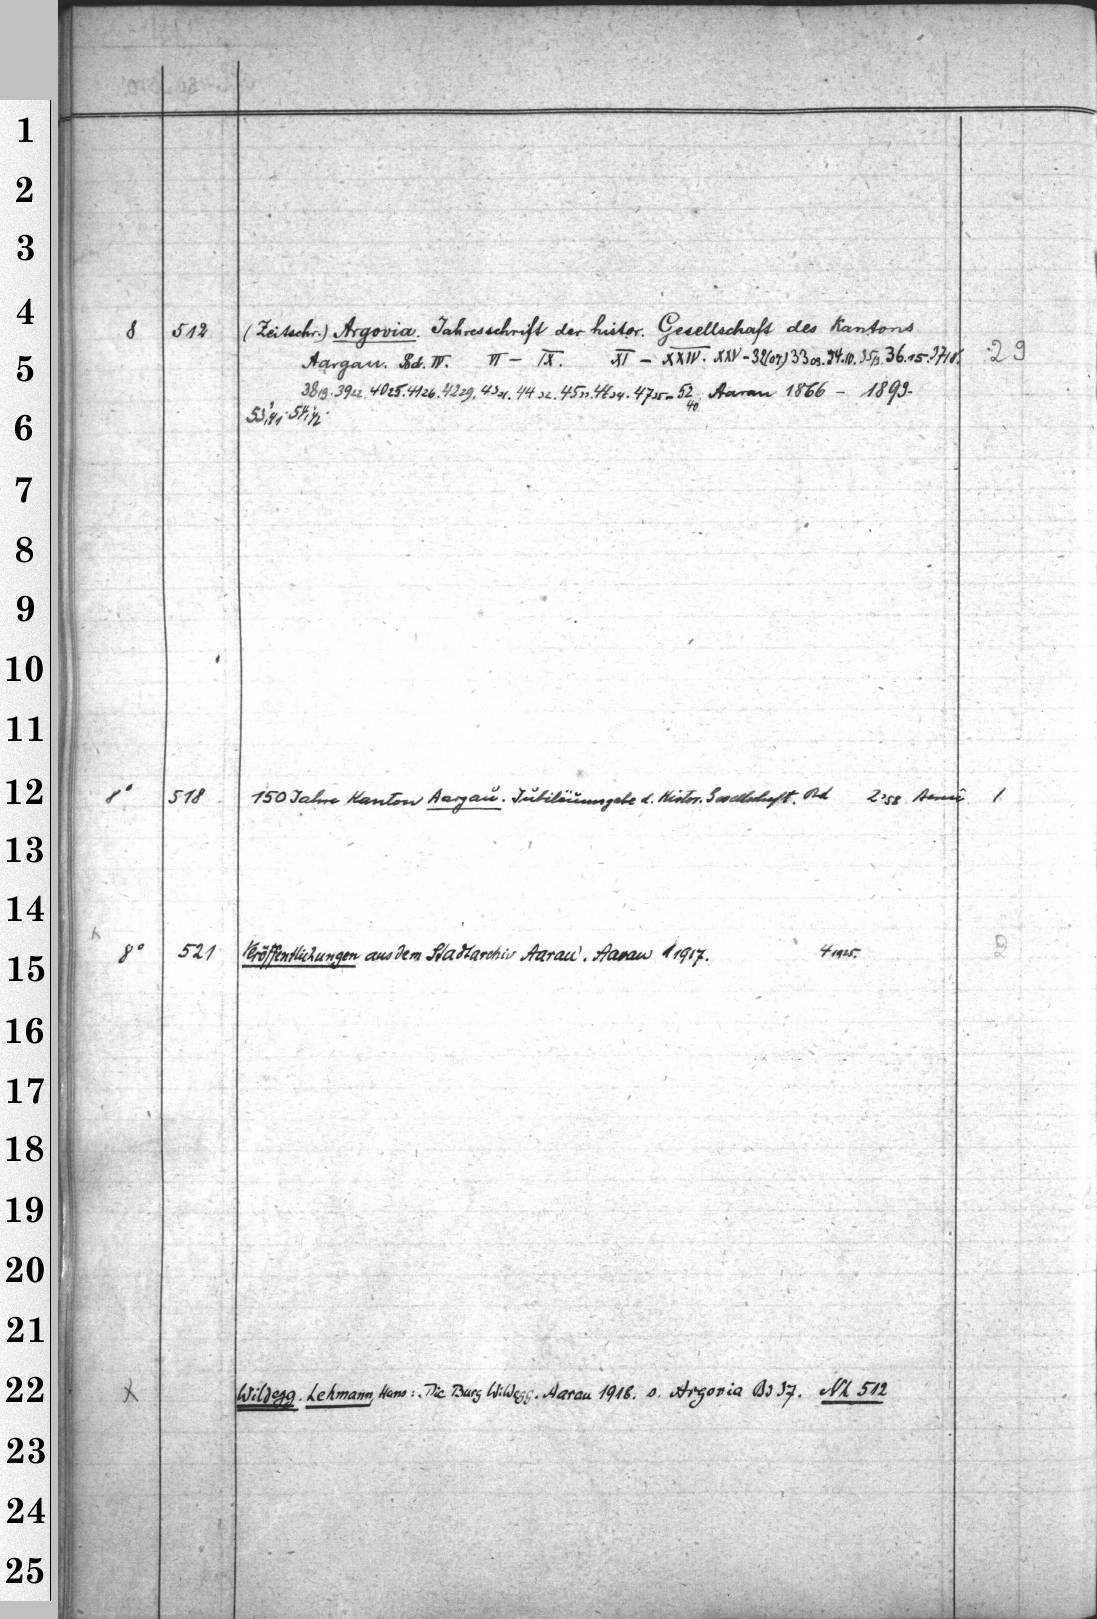 1
2
3
4
8 512 (Zeitschr.) Argovia. Jahresschrift der histor. Gesellschaft des Kantons
5
Aargau. Bd. IV. VI – IX. XI – XXIV. XXV – 32(07) 33 09. 34.10. 35/13 36.15. 37/18. 29
38 19. 39 22. 40 25. 41 26. 42 29. 43 31. 44 32. 45 33. 46 34. 47 35 – 52 40 Aarau 1866 – 1893.
6
7
8
9
10
11
12
8° 518 150 Jahre Kanton Aargau. Jubiläumsgabe d. Histor. Gesellschaft. Bd 2 58 Aarau 1
13
14
15
8° 521 Veröffentlichungen aus dem Stadtarchiv Aarau. Aarau 1 1917. 4 1925. 2
16
17
18
19
20
21
22
X Wildegg. Lehmann, Hans: Die Burg Wildegg. Aarau 1918. s. Argovia Bd 37. NL 512
23
24
25